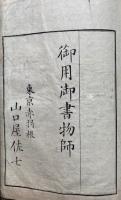 御用御書物師
東京赤羽根
山口屋佐七